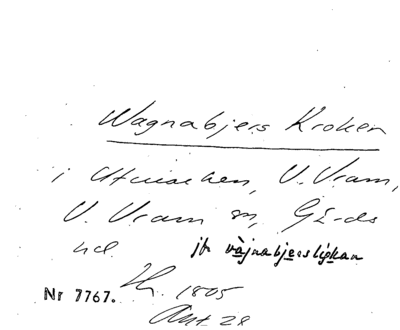 Wagnabjers Kroken
i Utmarken, V. Vram,
V. Vram sn, Gärds
hd. jfr vàjnabjerslípkan
Nr 7767. 1805
Akt 28